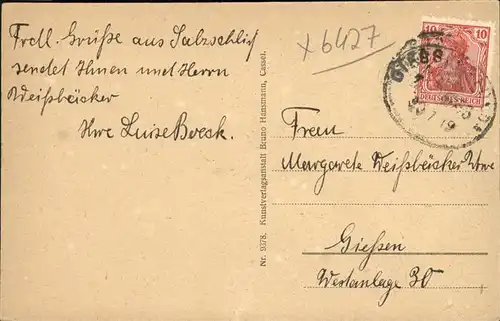 Frdl. Grüße aus Salzschlirf
sendet Ihnen und Herrn
Weißbäcker
Ihre Luise Boesk.
Nr. 9378. Kunstverlagsanstalt Bruno Hansmann, Cassel.
x 6427
10 10
DEUTSCHES REICH
Frau
Margarete Weißbäcker Wwe
Giessen
Westanlage 30